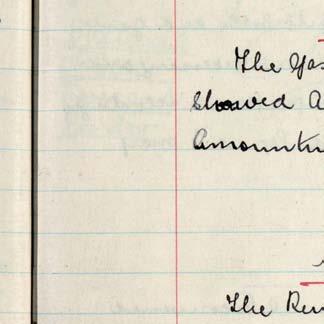 The Gas
Showed A
Amountin
The Ren